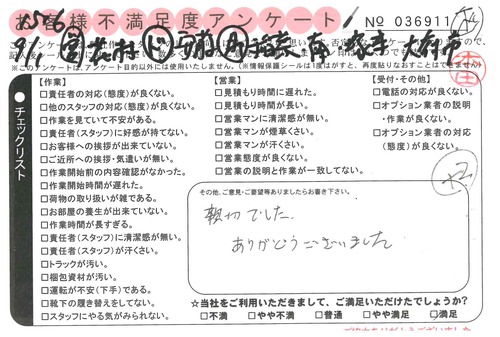 様不満足度アンケート
No 036911
チェックリスト
【作業】
□責任者の対応(態度)が良くない。
□他のスタッフの対応(態度)が良くない。
□作業を見ていて不安がある。
□責任者(スタッフ)に好感が持てない。
□お客様への挨拶が出来ていない。
□ご近所への挨拶・気遣いが無い。
□作業開始前の内容確認がなかった。
□作業開始時間が遅れた。
□荷物の取り扱いが雑である。
□お部屋の養生が出来ていない。
□作業時間が長すぎる。
□責任者(スタッフ)に清潔感が無い。
□責任者(スタッフ)が汗くさい。
□トラックが汚い。
□梱包資材が汚い。
□運転が不安(下手)である。
□靴下の履き替えをしてない。
□スタッフにやる気がみられない。
【営業】
□見積もり時間に遅れた。
□見積もり時間が長い。
□営業マンに清潔感が無い。
□営業マンが煙草くさい。
□営業マンが汗くさい。
□営業態度が良くない。
□営業の説明と作業が一致してない。
【受付・その他】
□電話の対応が良くない。
□オプション業者の説明
・作業が良くない。
□オプション業者の対応
(態度)が良くない。
その他、ご意見・ご要望等ありましたらお書き下さい。
親切でした
ありがとうございました
☆当社をご利用いただきまして、ご満足いただけたでしょうか?
□不満 □やや不満 □普通 □やや満足 □満足